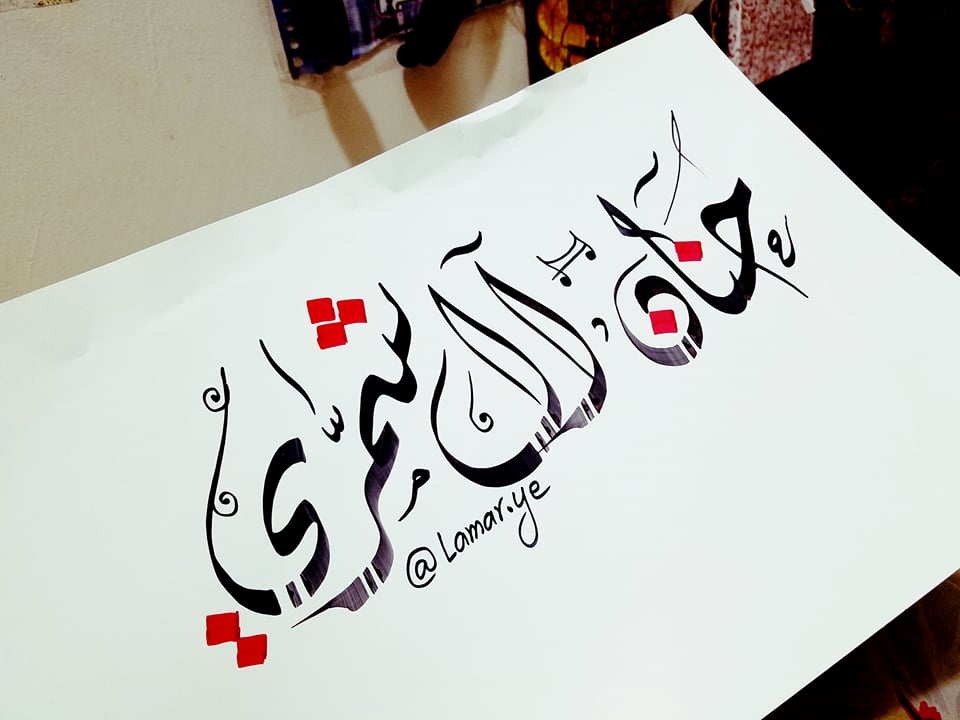 حنان آل شمّري
@Lamar.ye